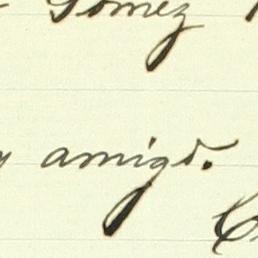 Gomez
y amigo.